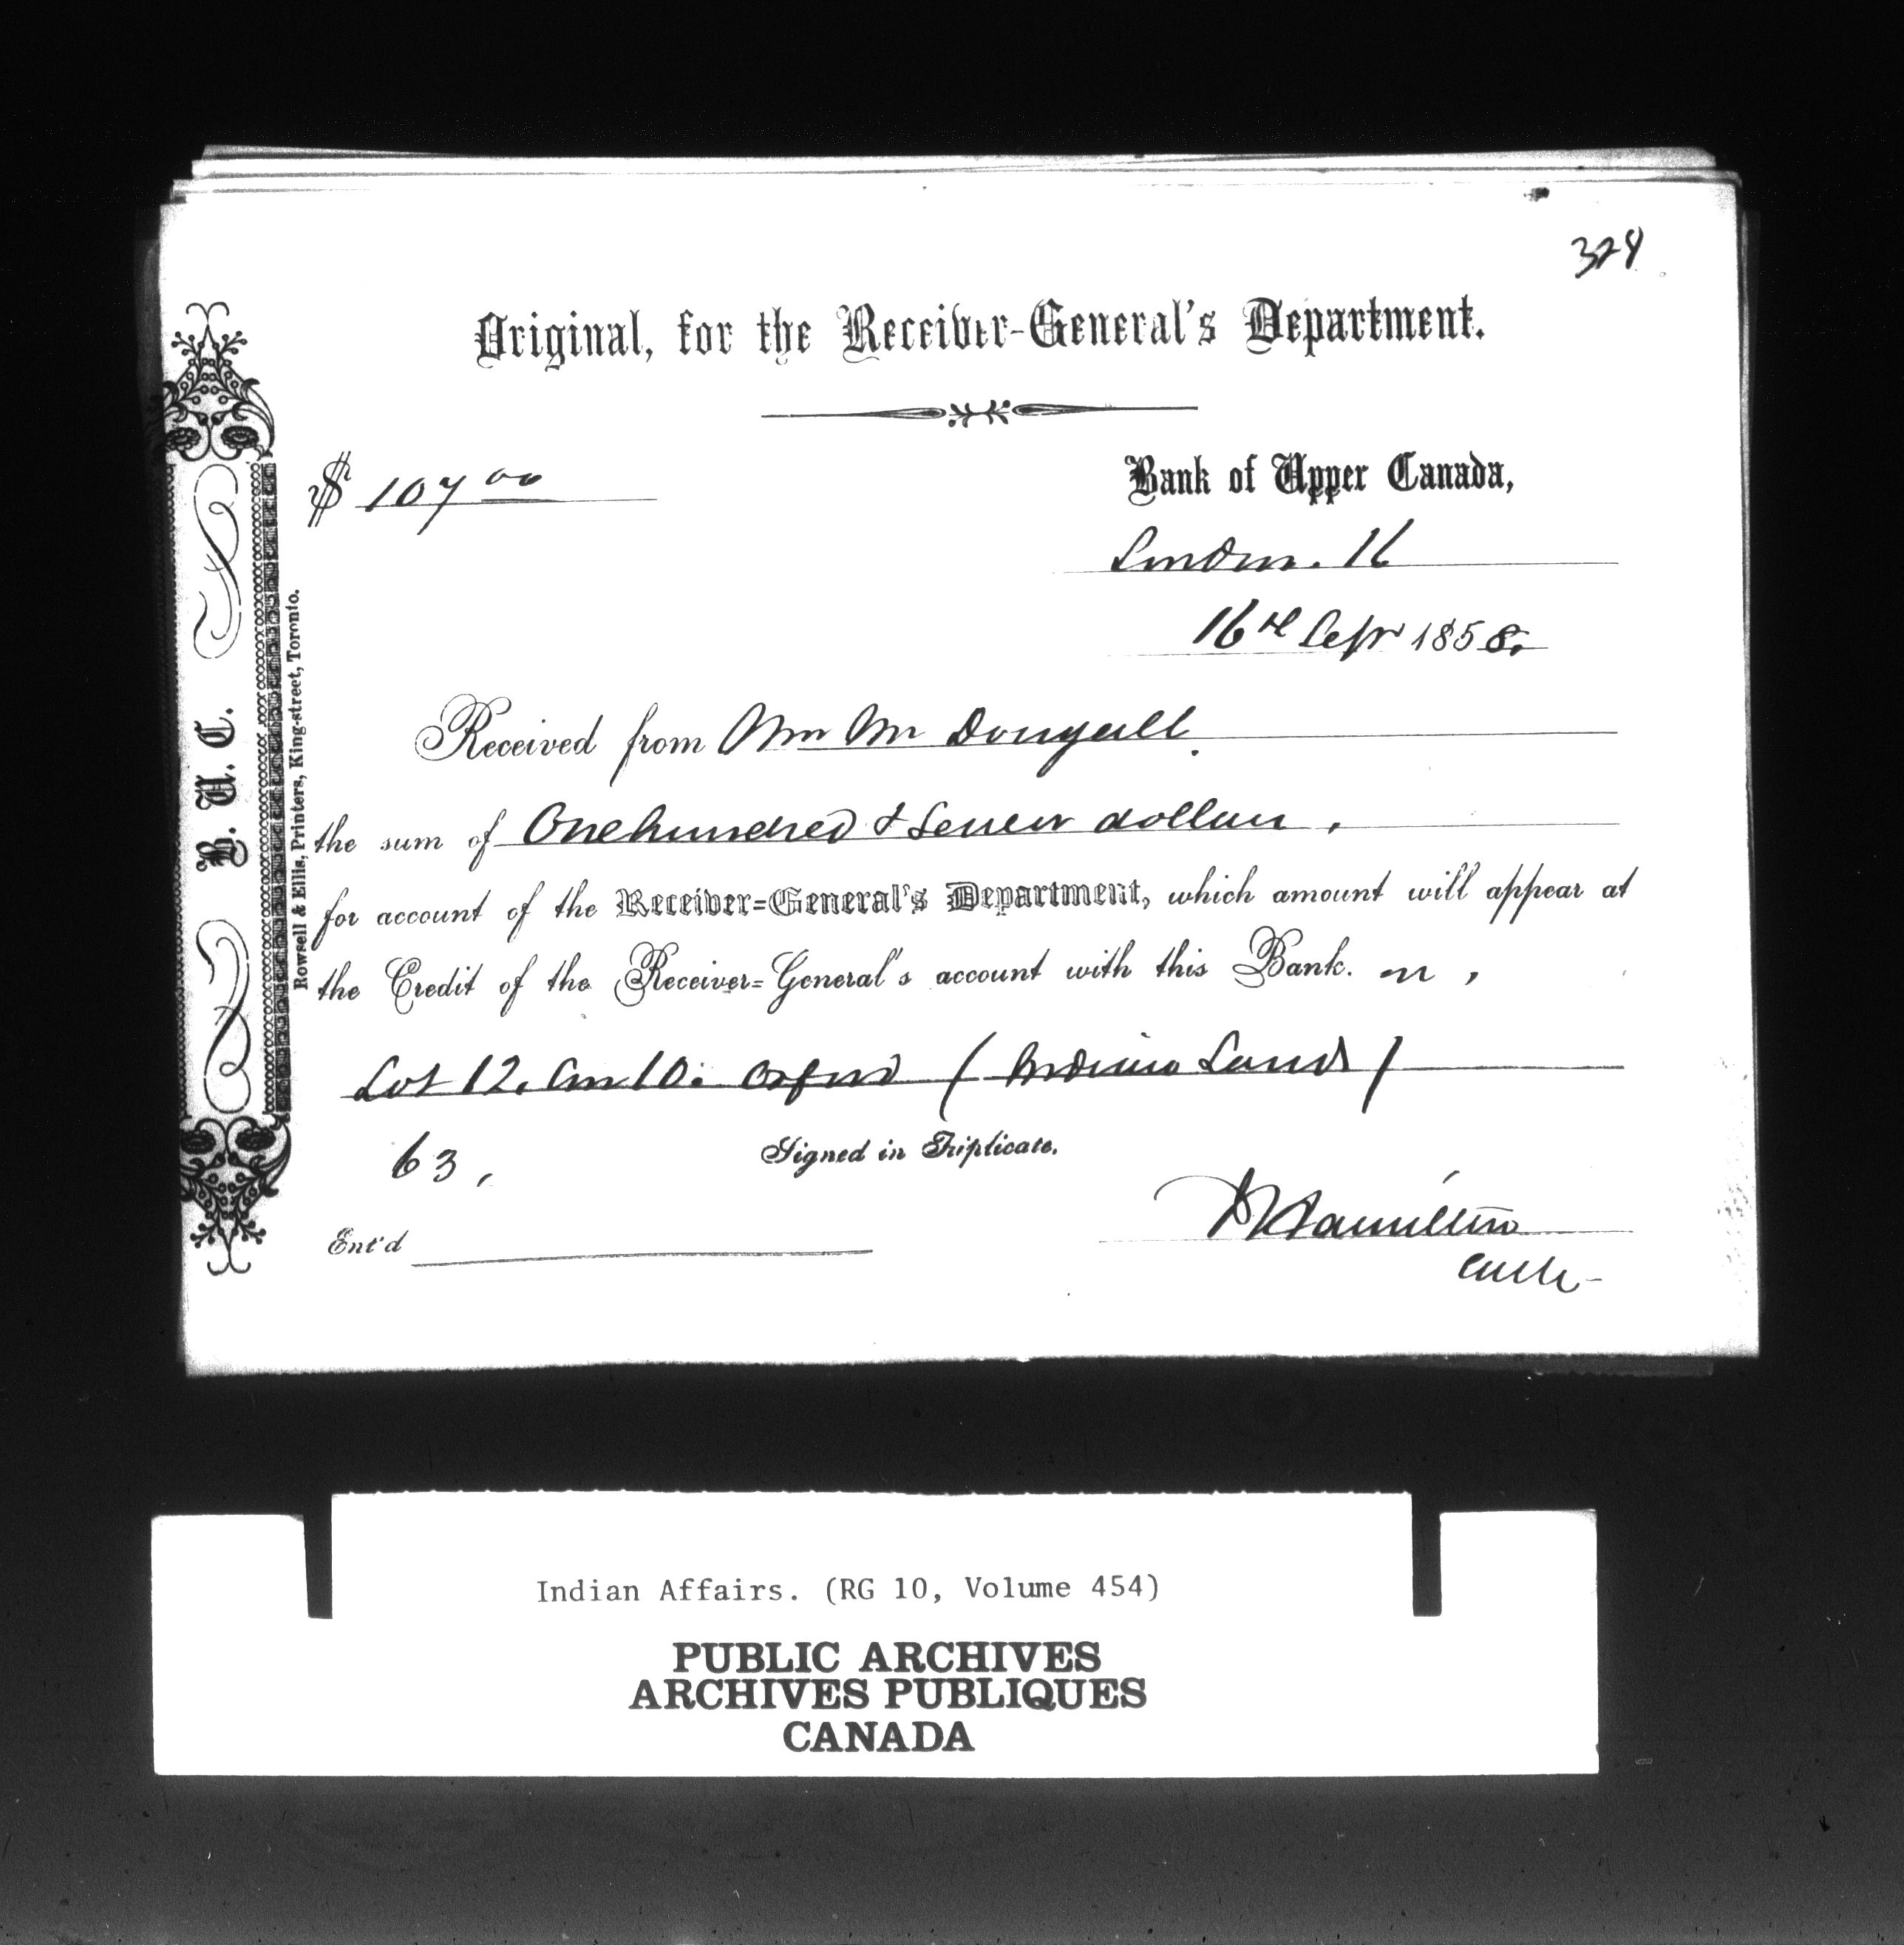 324
Original, for the Receiver-General's Department.
$ 107 00
Bank of Upper Canada,
London. 16
16th Sepr 1858.
Received from Wm Mc Dougall.
the sum of One hundred & Seven dollars,
for account of the Receiver-General's Department, which amount will appear at
the Credit of the Receiver-General's account with this Bank. on,
Lot 12, Con 10. Oxford (Indian Land)
63,
Signed in Triplicate.
Hamilton
Ent'd
B. U. C.
Rowsell & Ellis, Printers, King-street, Toronto.
Indian Affairs. (RG 10, Volume 454)
PUBLIC ARCHIVES
ARCHIVES PUBLIQUES
CANADA